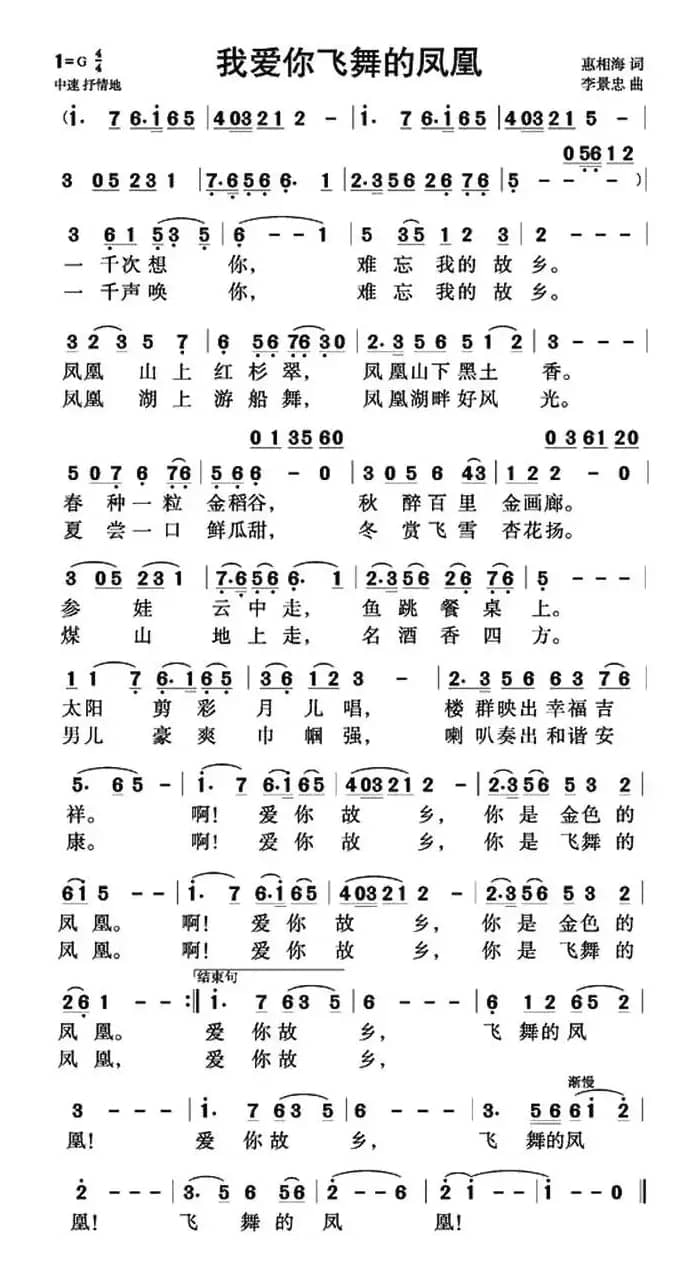 1=G 4/4 我爱你飞舞的凤凰 惠相海 词
中速 抒情地 李景忠 曲
(i· 7 6·i65 | 403212 - | i· 7 6·i65 | 403215 -
0 56 1 2
3 05 231 | 7·656 6· 1 | 2·356 26 76 | 5 - - -) |
3 61 53 5 | 6 - - 1 | 5 35 12 3 | 2 - - - |
一 千次想 你, 难 忘 我的 故 乡。
一 千声唤 你, 难 忘 我的 故 乡。
32 3 5 7 | 6 56 76 30 | 2·35 6 51 2 | 3 - - - |
凤凰 山 上 红 杉 翠, 凤 凰山下 黑土 香。
凤凰 湖 上 游 船 舞, 凤凰湖畔 好风 光。
0 1 35 60 0 3 61 20
5 07 6 76 | 566 - 0 | 305 6 43 | 122 - 0 |
春 种 一 粒 金稻谷, 秋 醉 百 里 金画廊。
夏 尝 一 口 鲜瓜甜, 冬 赏 飞 雪 杏花扬。
3 05 231 | 7·656 6· 1 | 2·356 26 76 | 5 - - - |
参 娃 云 中 走, 鱼 跳 餐 桌 上。
煤 山 地 上 走, 名 酒 香 四 方。
11 7 6·165 | 36 12 3 - | 2·356 63 76 |
太阳 剪 彩 月 儿 唱, 楼 群映出 幸福 吉
男儿 豪 爽 巾 帼 强, 喇 叭奏出 和谐 安
5· 65 - - | i· 7 6·i65 | 403212 - | 2·356 53 2 |
祥。 啊! 爱 你 故 乡, 你 是 金色 的
康。 啊! 爱 你 故 乡, 你 是 飞舞 的
6i 5 - - | i· 7 6·i65 | 403212 - | 2·356 53 2 |
凤 凰。 啊! 爱 你 故 乡, 你 是 金色 的
凤 凰。 啊! 爱 你 故 乡, 你 是 飞舞 的
结束句
26 1 - - :‖ i· 7 63 5 | 6 - - - | 6 12 65 2 |
凤 凰。 爱 你故 乡, 飞 舞的 凤
凤 凰, 爱 你故 乡,
渐慢
3 - - - | i· 7 63 5 | 6 - - - | 3· 56 6i 2 |
凰! 爱 你故 乡, 飞 舞的凤
2 - - - | 3· 5 6 56 | 2 - - 6 | 2 i - - | i - 0 0 ‖
凰! 飞 舞 的 凤 凰!